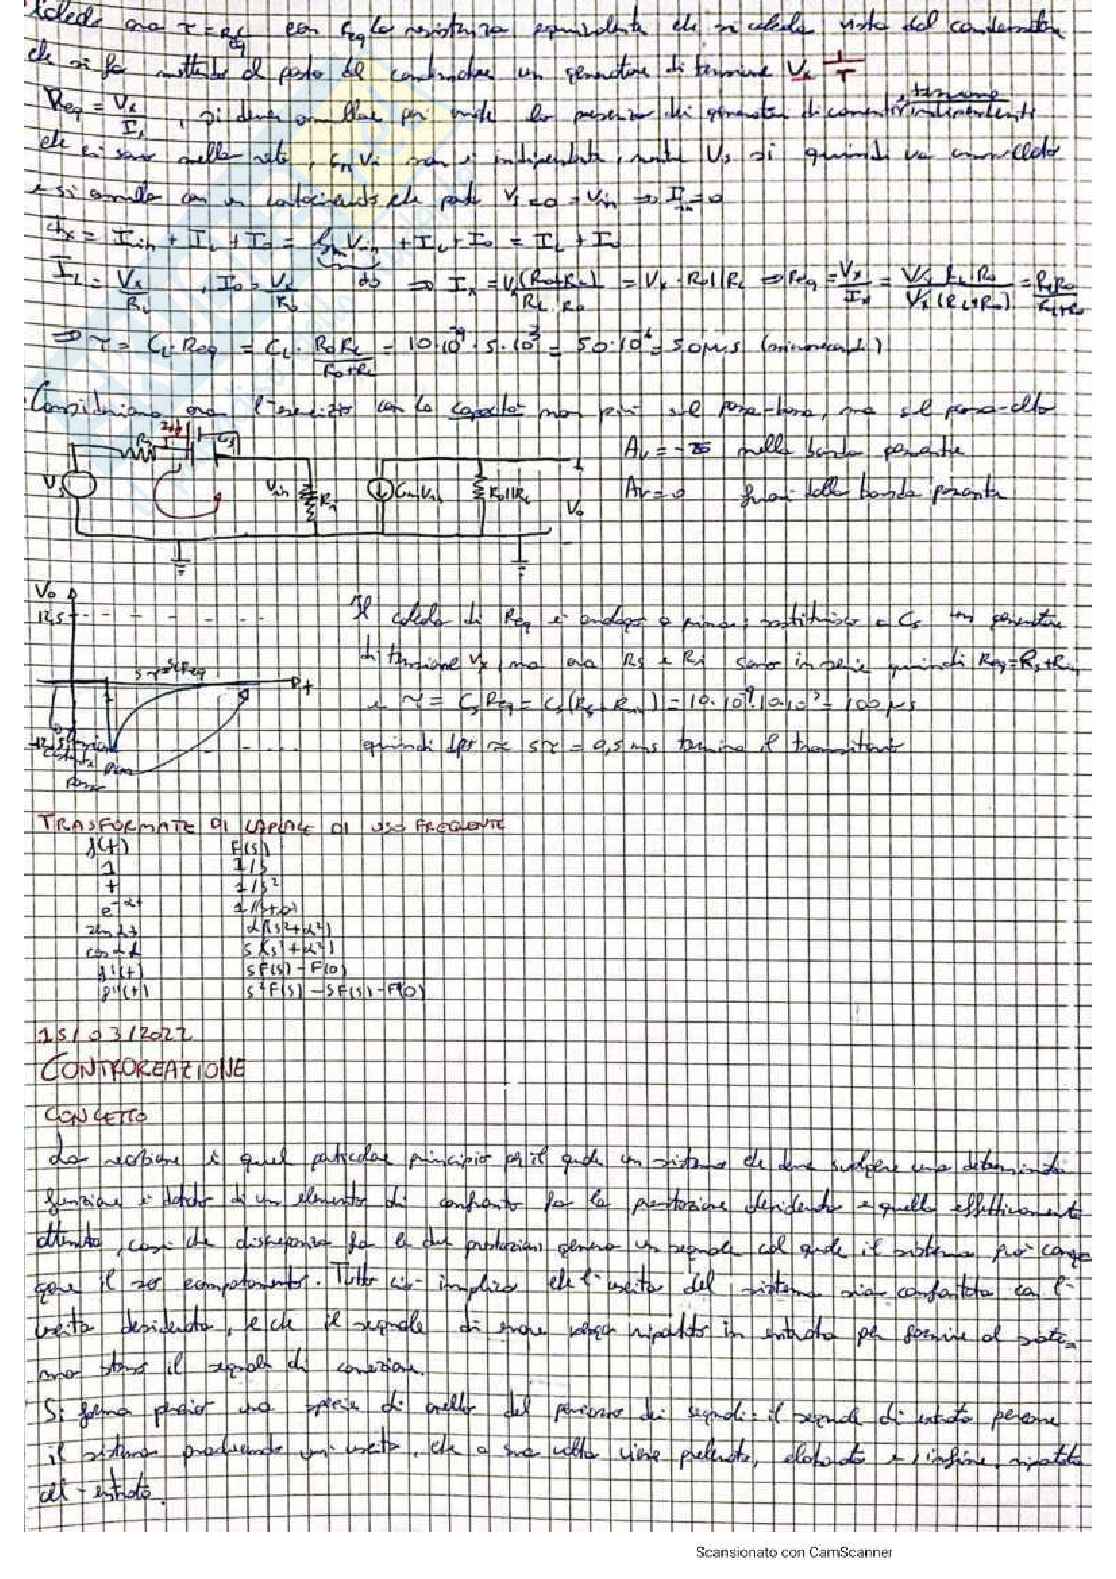 ora τ = Req C con Req la resistenza equivalente che si calcola vista dal condensatore
che si fa mettendo al posto del condensatore un generatore di tensione Vx
Req = Vx / Ix , si deve annullare poi anche la presenza dei generatori di corrente, tensione indipendenti
che ci sono nella rete, Gm Vin non è indipendente, mentre Vs si quindi va annullato
e si annulla con un cortocircuito che porta Vs = 0 = Vin ⇒ Iin = 0
Ix = Iin + IL + Io = Gm Vin + IL + Io = IL + Io
IL = Vx / RL , Io = Vx / Ro ⇒ Ix = Vx (Ro+RL) / RL Ro = Vx · Ro||RL ⇒ Req = Vx / Ix = Vx RL·Ro / Vx (RL+Ro) = RLRo / RL+Ro
⇒ τ = CL·Req = CL · RoRL / Ro+RL = 10·10⁻⁹·5·10³ = 50·10⁻⁶ = 50 μs (microsecondi)
Consideriamo ora l'esercizio con la capacità non più sul passa-basso, ma sul passa-alto
Av = -25 nella banda passante
Av = 0 fuori dalla banda passante
Rs Cs
Vs Vin Ri Gm Vin Ro||RL Vo
Vo
12,5
5τ = 5CsReq t
-12,5
Il calcolo di Req è analogo a prima, sostituisco a Cs un generatore
di tensione Vx, ma ora Rs e Ri sono in serie quindi Req = Rs+Rin
e τ = CsReq = Cs(Rs+Rin) = 10·10⁻⁹·10·10³ = 100 μs
quindi dps ≈ 5τ = 0,5 ms termina il transitorio
TRASFORMATE DI LAPLACE DI USO FREQUENTE
f(t) F(s)
1 1/s
t 1/s²
e^-αt 1/(s+α)
sen αt α/(s²+α²)
cos αt s/(s²+α²)
f'(t) sF(s) - F(0)
f''(t) s²F(s) - sF(s) - F(0)
15/03/2022
CONTROREAZIONE
CONCETTO
La reazione è quel particolare principio per il quale un sistema che deve svolgere una determinata
funzione è dotato di un elemento di confronto fra la prestazione desiderata e quella effettivamente
ottenuta, così che discrepanza fra le due prestazioni genera un segnale col quale il sistema può corre
gere il suo comportamento. Tutto ciò implica che l'uscita del sistema sia confrontata con l'
uscita desiderata, e che il segnale di errore venga riportato in entrata per fornire al siste-
ma stesso il segnale di correzione.
Si forma perciò una specie di anello del percorso dei segnali: il segnale di entrata percorre
il sistema producendo un'uscita, che a sua volta viene prelevata, elaborata e, infine, riportata
all'entrata.
Scansionato con CamScanner